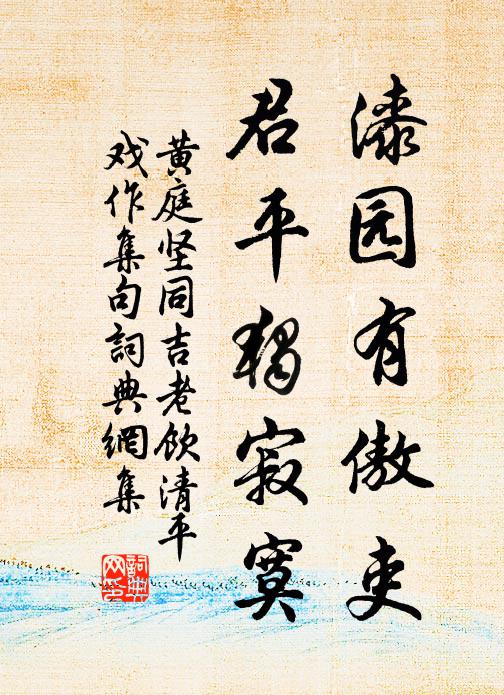 漆园有傲吏
君平独寂寞
黄庭坚同吉老饮清平
戏作集句詞典網集
詞典